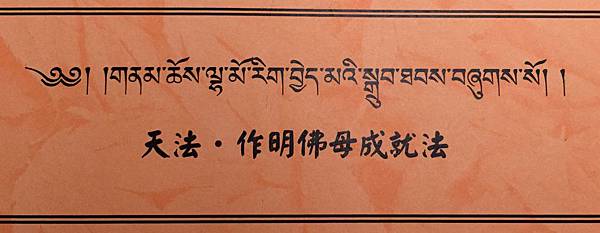 ༄༅། །གནམ་ཆོས་ལྷ་མོ་རིག་བྱེད་མའི་སྒྲུབ་ཐབས་བཞུགས་སོ། །
天法·作明佛母成就法